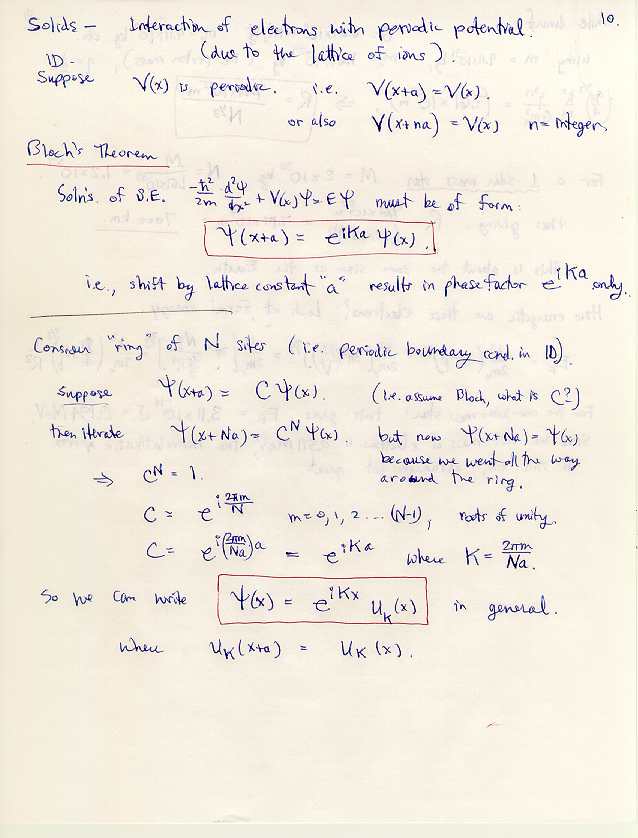 10.
Solids – Interaction of electrons with periodic potential.
(due to the lattice of ions).
1D-
Suppose V(x) is periodic. i.e. V(x+a) = V(x).
or also V(x+na) = V(x) n = integer,
Bloch's Theorem
Soln's. of S.E. -ħ²/2m d²Ψ/dx² + V(x)Ψ = EΨ must be of form:
Ψ(x+a) = e^{iKa} Ψ(x).
i.e., shift by lattice constant "a" results in phase factor e^{iKa} only.
Consider "ring" of N sites (i.e. periodic boundary cond. in 1D).
Suppose Ψ(x+a) = CΨ(x). (i.e. assume Bloch, what is C?)
then iterate Ψ(x+Na) = C^N Ψ(x). but now Ψ(x+Na) = Ψ(x)
because we went all the way
⇒ C^N = 1. around the ring.
C = e^{i 2πm/N} m = 0, 1, 2 ... (N-1), roots of unity.
C = e^{i(2πm/Na)a} = e^{iKa} where K = 2πm/Na.
So we can write Ψ(x) = e^{iKx} u_K(x) in general.
where u_K(x+a) = u_K(x).